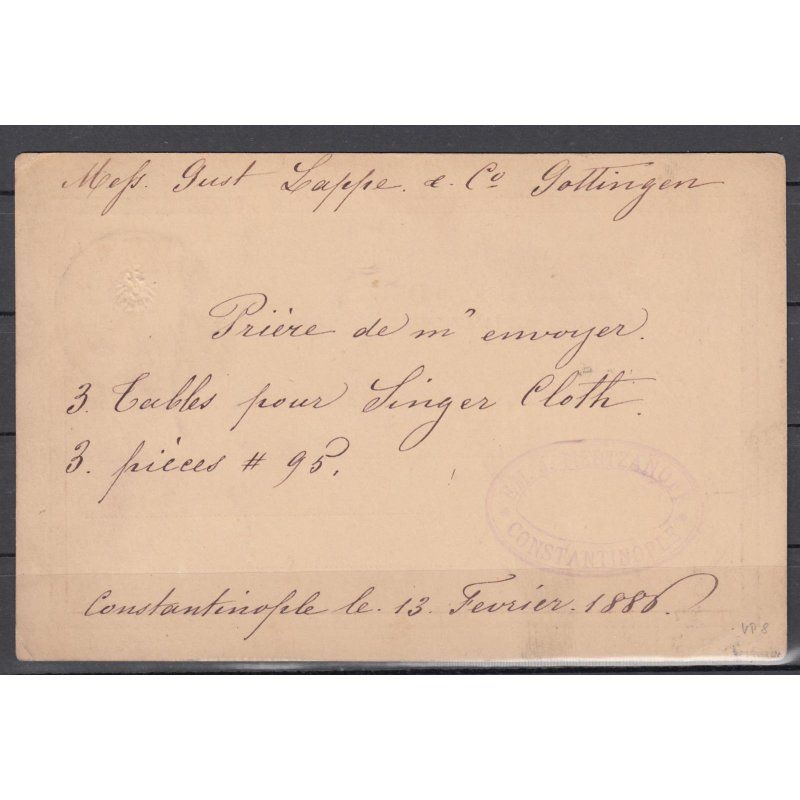 Mess. Gust Lappe. & Co Gottingen
Prière de m'envoyer.
3. Tables pour Singer Cloth.
3. pièces # 95.
CONSTANTINOPLE
Constantinople le. 13. Fevrier. 1886.
VP8